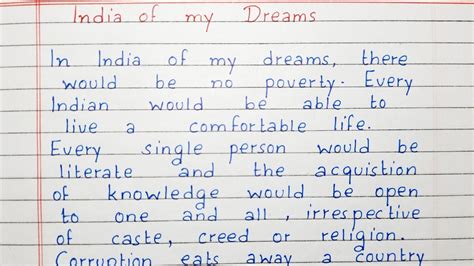 India of my Dreams
In India of my dreams, there
would be no poverty. Every
Indian would be able to
live a comfortable life.
Every single person would be
literate and the acquistion
of knowledge would be open
to one and all, irrespective
of caste, creed or religion.
Corruption eats away a country